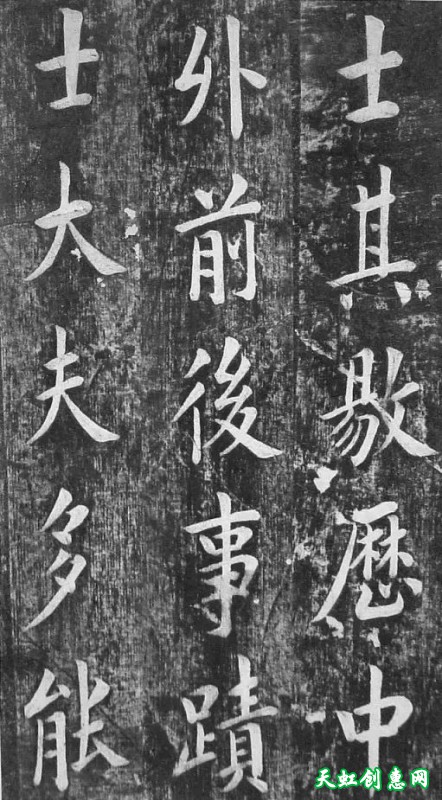 士其敭歷中
外前後事蹟
士大夫多能
天虹创惠网